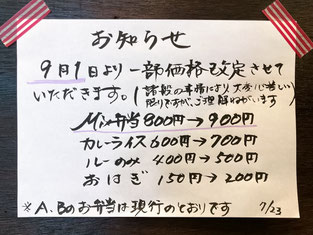 お知らせ
9月1日より一部価格改定させて
いただきます。(諸般の事情により大変心苦しい
限りですが、ご理解ねがいます)
Mix弁当 800円→900円
カレーライス 600円→700円
ルーのみ 400円→500円
おはぎ 150円→200円
※A、Bのお弁当は現行のとおりです 7/23